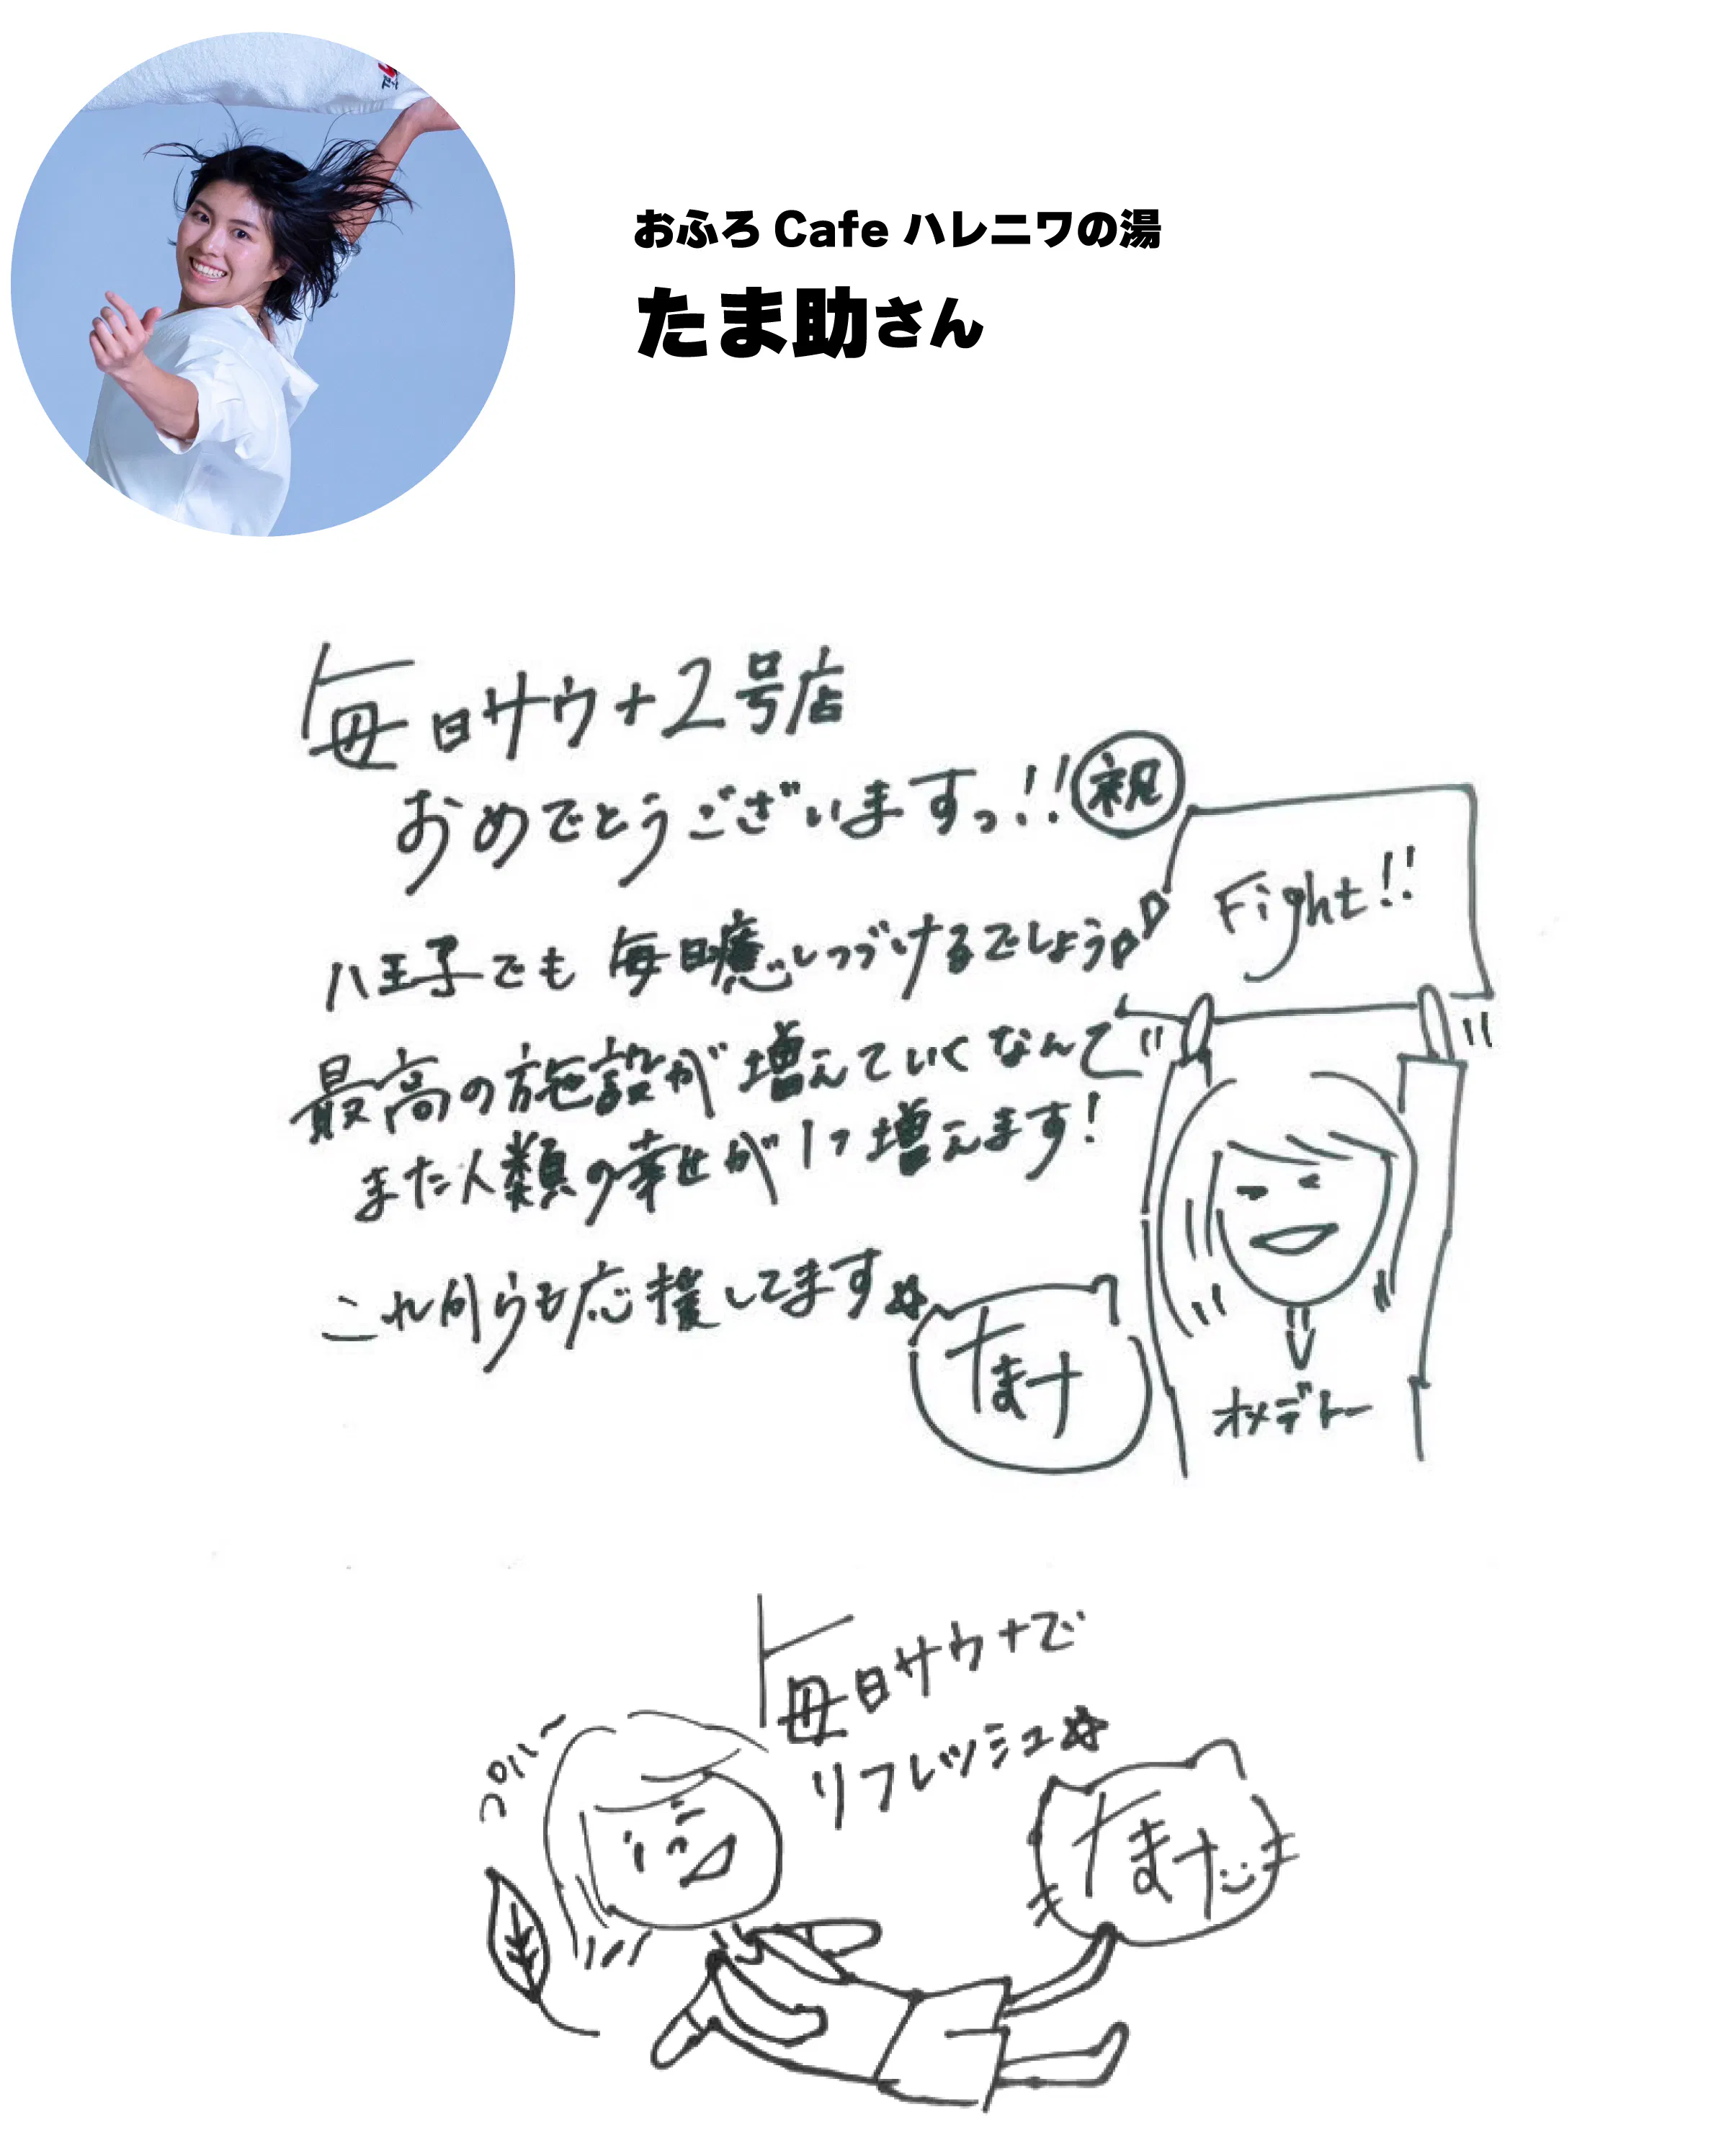 おふろ Cafe ハレニワの湯
たま助さん
毎日サウナ2号店
おめでとうございますっ!! ㊗
八王子でも毎日癒しつづけるでしょう
Fight!!
最高の施設が増えていくなんて
また人類の幸せが1つ増えます!
これからも応援してます☆
オメデトー
毎日サウナで
リフレッシュ☆